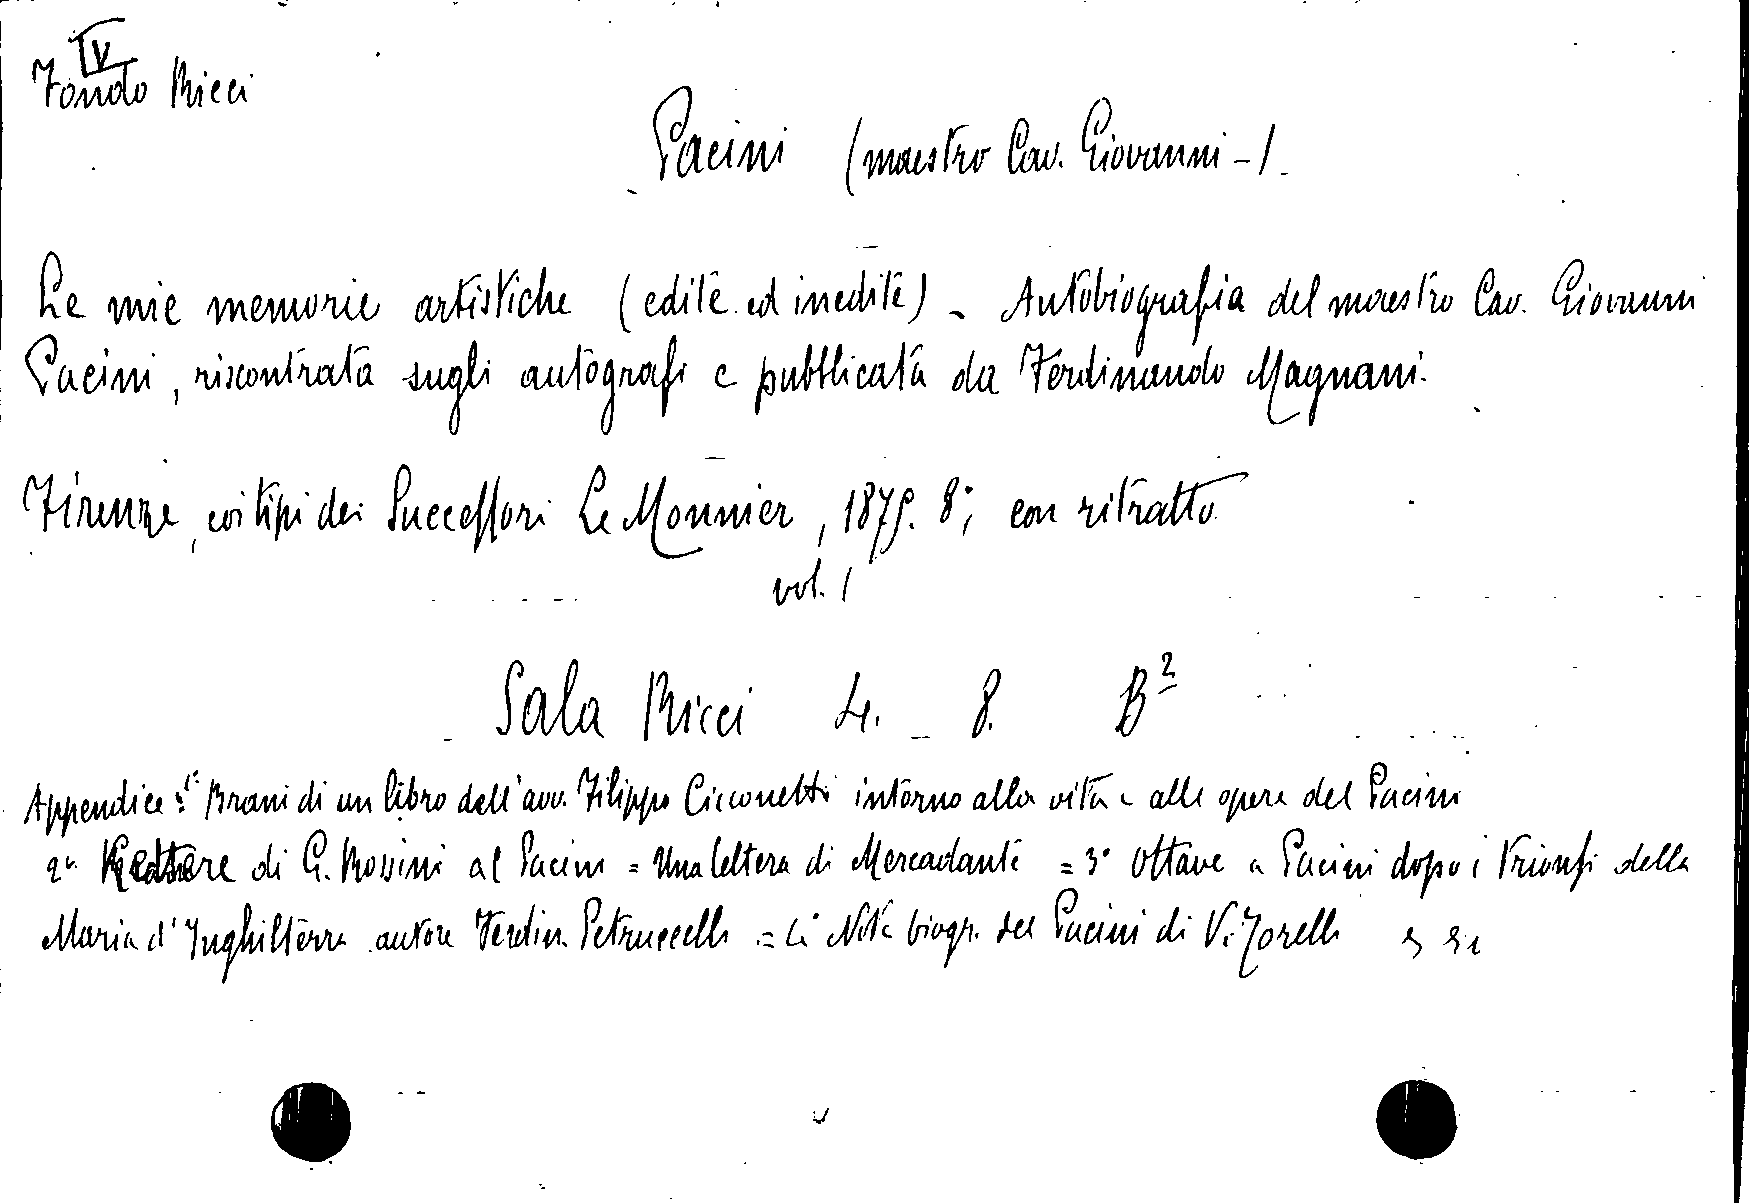 IV
Fondo Ricci
Pacini (maestro Cav. Giovanni -)
Le mie memorie artistiche (edite ed inedite) - Autobiografia del maestro Cav. Giovanni
Pacini, riscontrata sugli autografi e pubblicata da Ferdinando Magnani.
Firenze, coi tipi dei Successori Le Monnier, 1875. 8°, con ritratto
vol. 1
Sala Ricci 4. - 8. B²
Appendice: 1° Brani di un libro dell'avv. Filippo Cicconetti intorno alla vita e alle opere del Pacini
2° Lettere di G. Rossini al Pacini = Una lettera di Mercadante = 3° Ottave a Pacini dopo i trionfi della
Maria d'Inghilterra autore Ferdin. Petruccelli = 4° Note biogr. del Pacini di V. Torelli